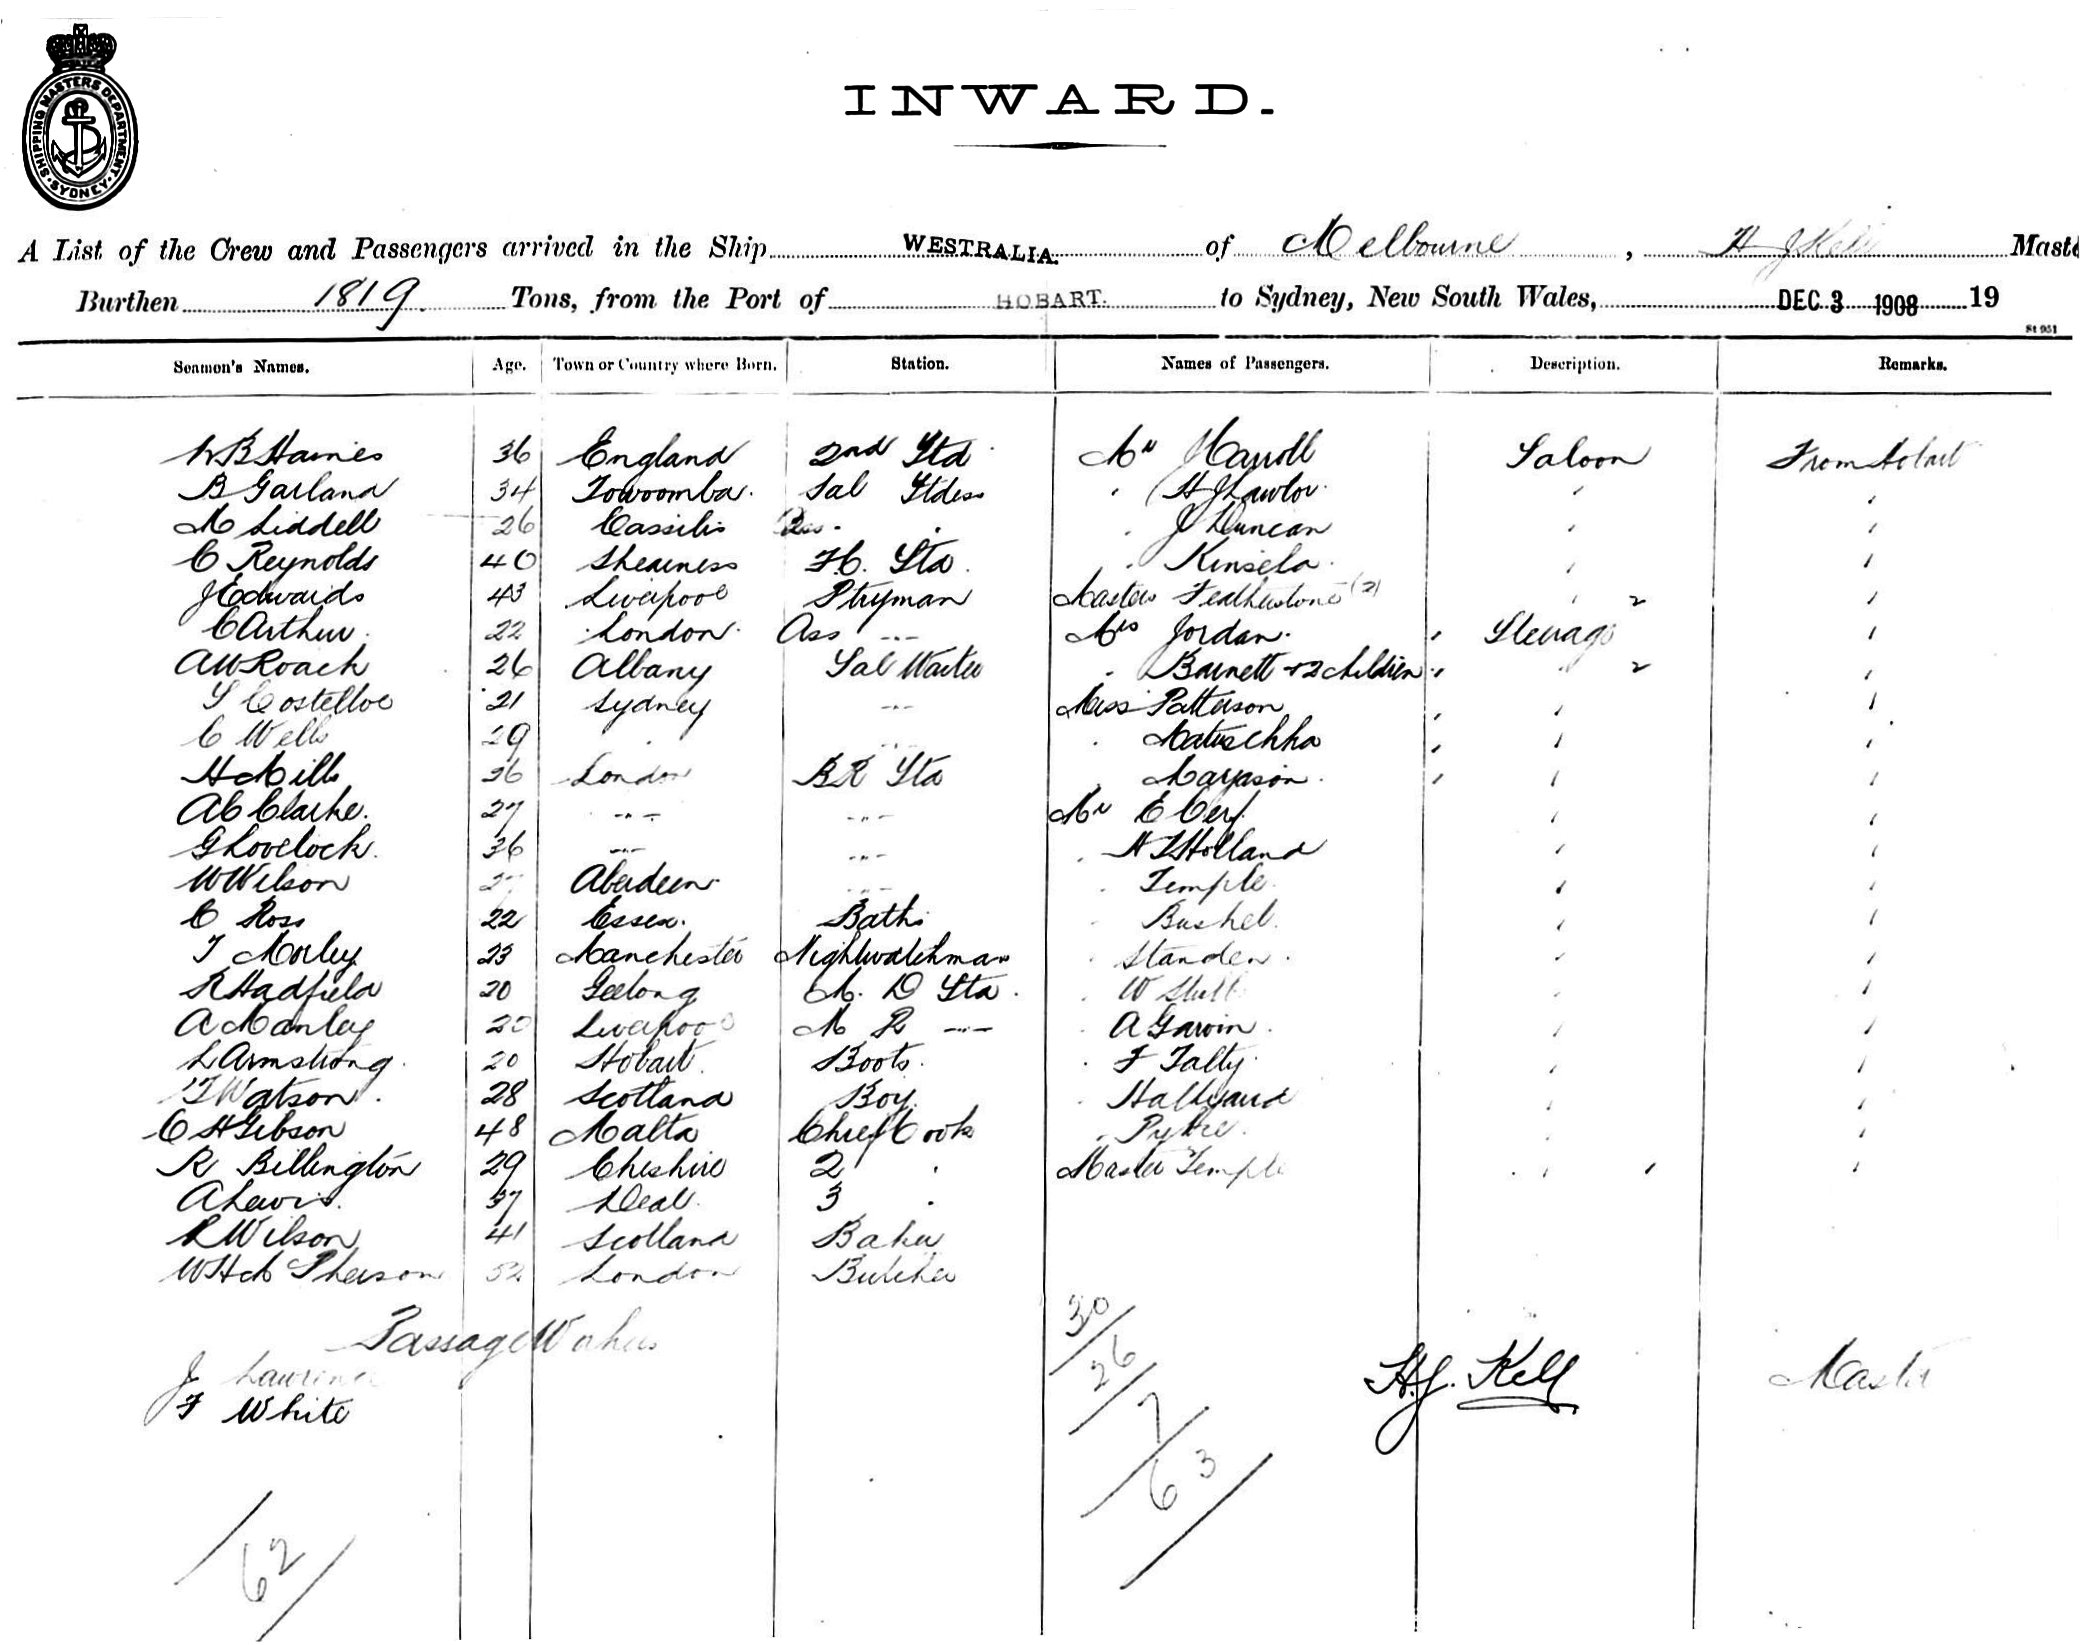 SHIPPING MASTERS DEPARTMENT. SYDNEY.
INWARD.
A List of the Crew and Passengers arrived in the Ship WESTRALIA. of Melbourne, H J Kell Maste
Burthen 1819 Tons, from the Port of HOBART. to Sydney, New South Wales, DEC. 3 1908 19
St 951
Seamen's Names. Age. Town or Country where Born. Station. Names of Passengers. Description. Remarks.
W B Haines 36 England 2nd Std Mr J Carroll Saloon From Hobart
B Garland 34 Towoomba. Sal Stdess " H J Lawlor. " "
M Liddell 26 Cassilis " J Duncan " "
C Reynolds 40 Sheerness F.C. Std. " Kinsela. " "
J Edwards 43 Liverpool Ptryman Masters Featherstone (2) " 2 "
C Arthur. 22 London. Ass -"- Mrs Jordan. " Steerage "
A W Roach 26 Albany Sal Waiter " Barnett + 2 children " " 2 "
S Costelloe 21 Sydney -"- Miss Patterson " " "
C Wells 29 " -"- " Matuschka " " "
H Mills 36 London B R Std " Marjason. " " "
A C Clarke. 27 -"- -"- Mr E Cerf. " "
G Lovelock. 36 -"- -"- " H T Holland " "
W Wilson Aberdeen -"- " Temple. " "
C Ross 22 Essex. Baths " Bushel. " "
T Morley 23 Manchester Nightwatchman " Standen. " "
R Hadfield 20 Geelong M. D Std. " W " "
A Manley 20 Liverpool M R -"- " A Garvin. " "
L Armstrong. 20 Hobart. Boots. " F Talty. " "
T Watson. 28 Scotland Boy. " Hallyard " "
C H Gibson 48 Malta Chief Cook " "
R Billington 29 Cheshire 2 " Master Temple " " "
A Lewis. 37 Deal. 3 "
R Wilson 41 Scotland Baker
W H McPherson 52 London Butcher
Passage Workers
J Lawrence
F White
30/
26/
7/
63/
H.J. Kell Master
/62/